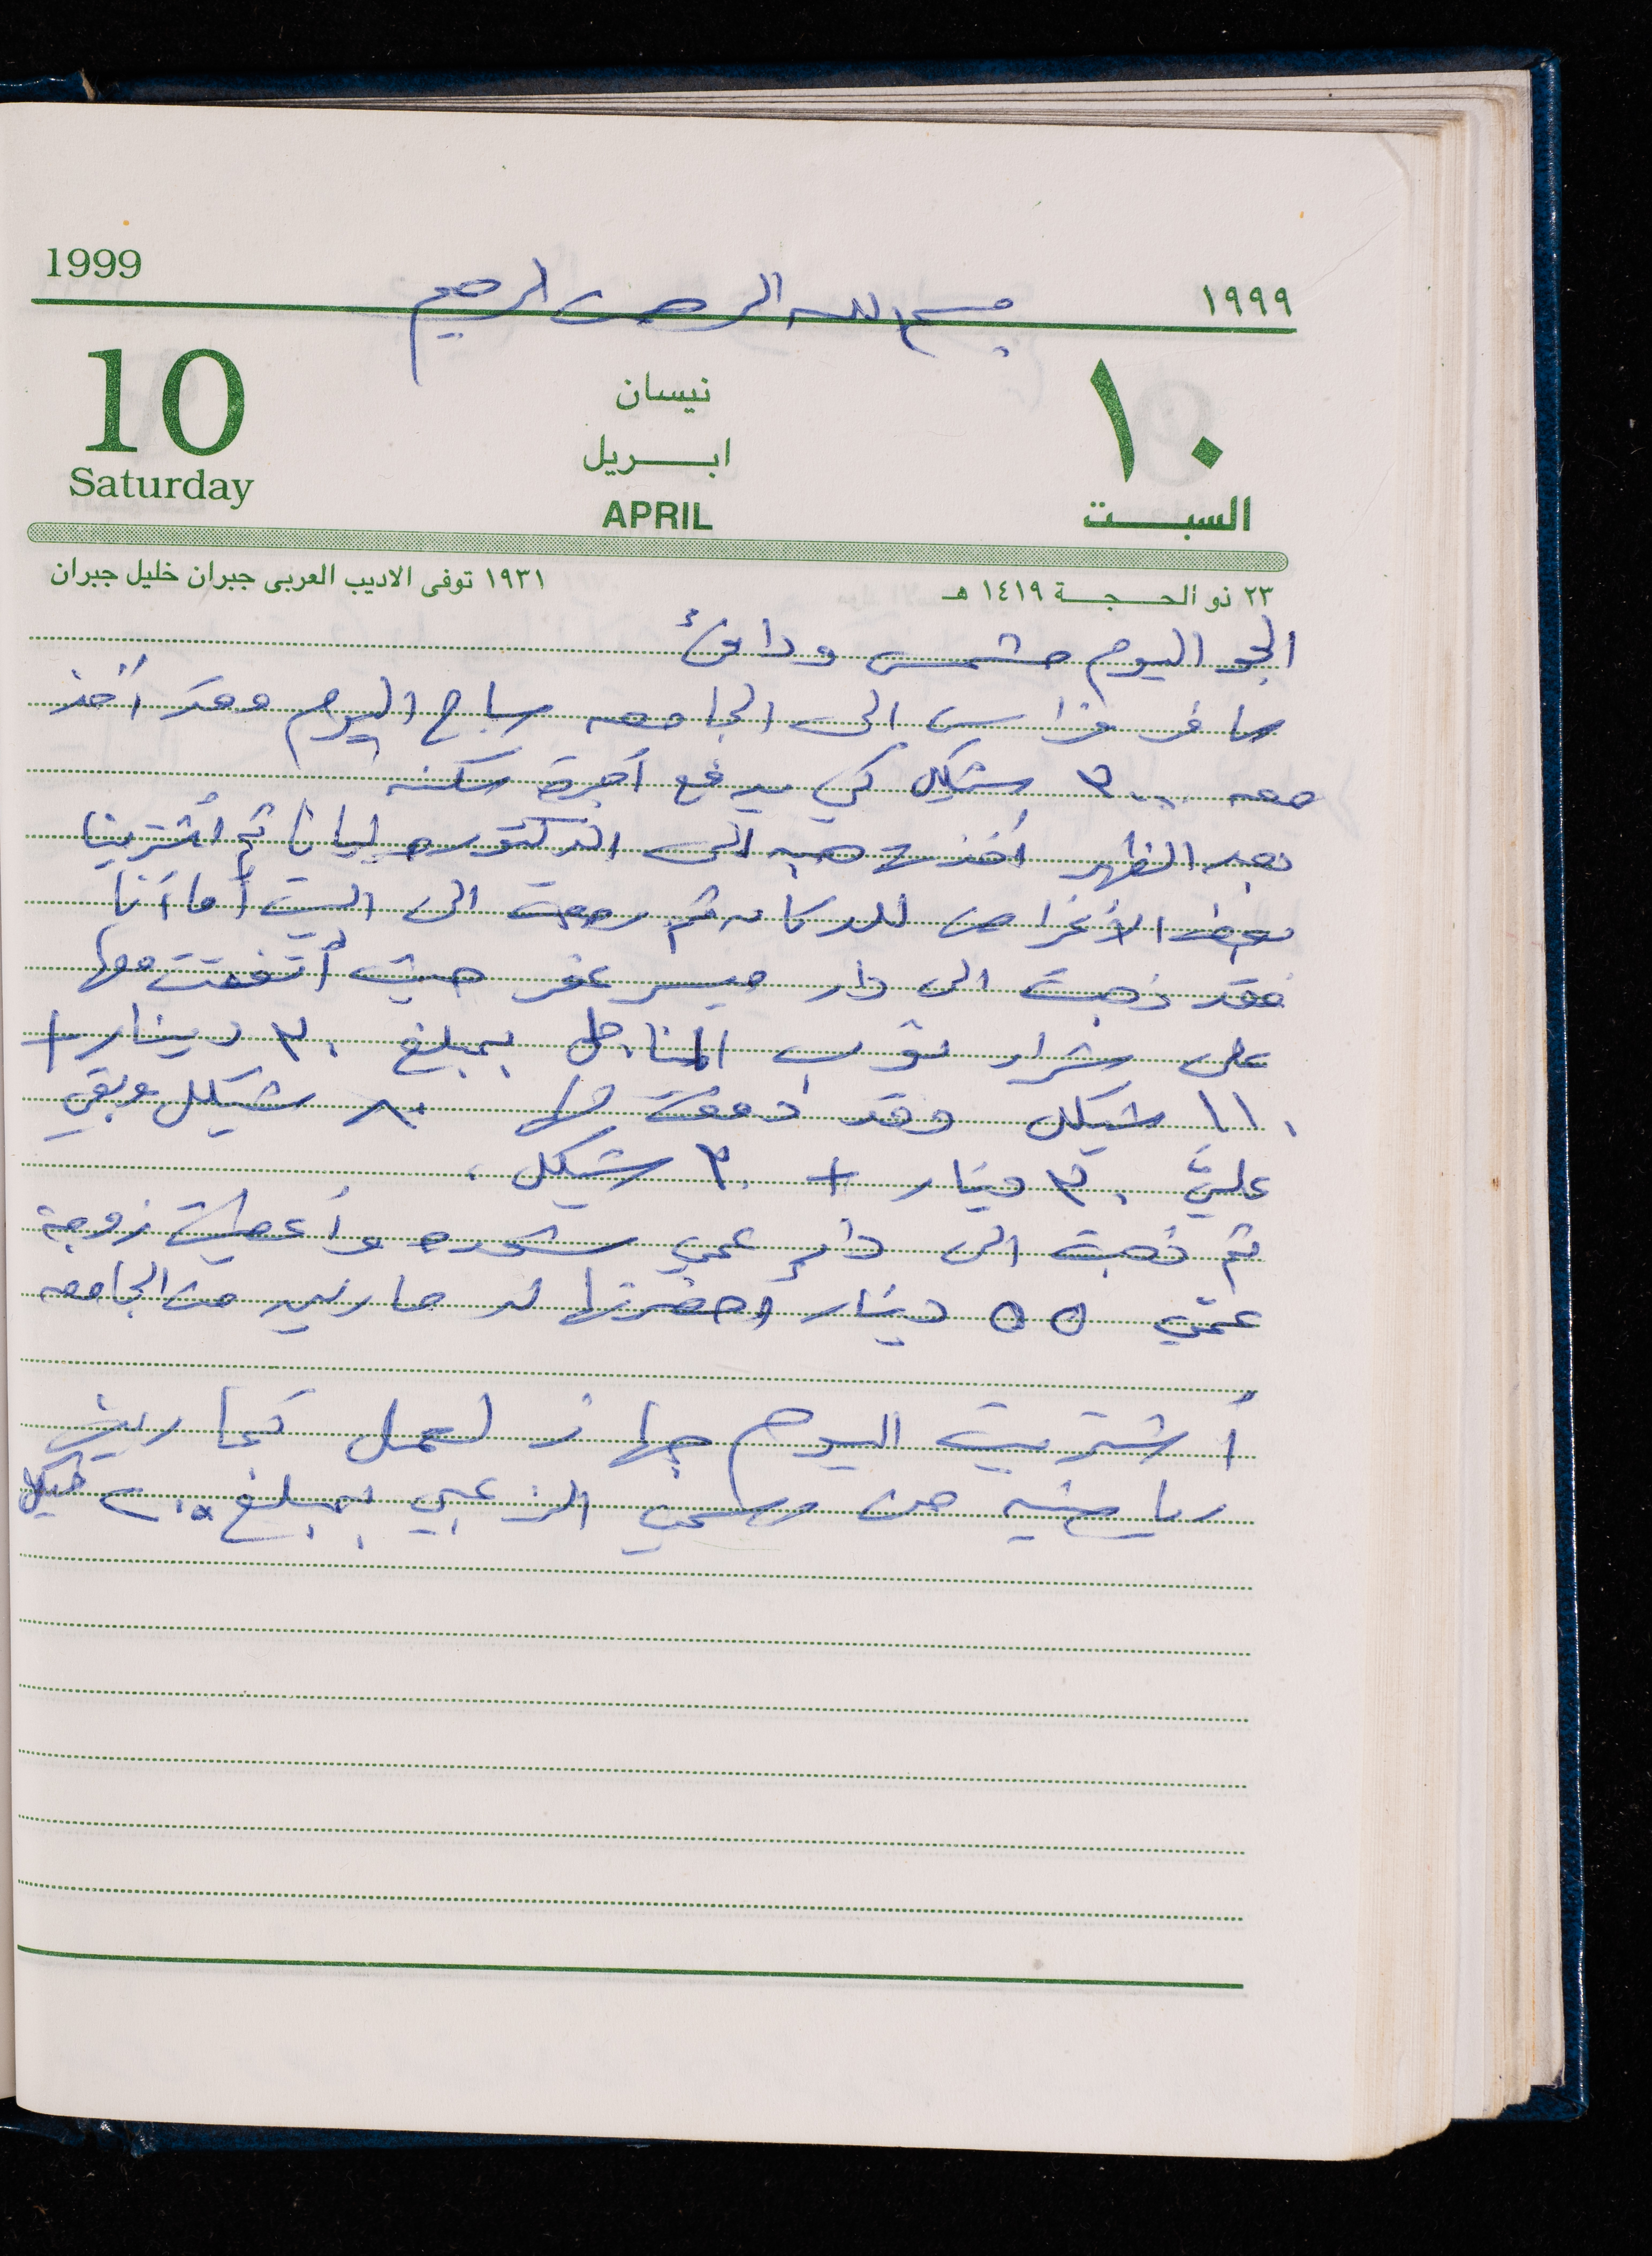 1999
١٩٩٩
بسم الله الرحمن الرحيم
10
نيسان
١٠
ابريل
Saturday
APRIL
السبت
٢٣ ذو الحجة ١٤١٩ هـ
١٩٣١ توفى الاديب العربى جبران خليل جبران
الجو اليوم مشمس ودافئ
سافر فراس الى الجامعه صباح اليوم وقد أخذ
معه ٣٠٠٠ شيكل كي يدفع أجرة سكنه
بعد الظهر أخذت الى الدكتوره ليانا ثم أشترينا
بعض الأغراض للدكانه ثم رجعت الى البيت أما أنا
فقد ذهبت الى دار ميسر حيث أتفقت معها
على شراء ثوب المناجل بمبلغ ٣٠ دينار +
١١٠ شيكل وقد دفعت لها ٨٠ شيكل وبقي
عليّ ٣٠ دينار + ٣٠ شيكل.
ثم ذهبت الى دار عمي شحده وأعطيت زوجة
عمّي ٥٥ دينار احضرتها لد من الجامعه
أشتريت اليوم جهاز لعمل تمارين
رياضيه من الزعبي بمبلغ ٢٠٥ شيكل